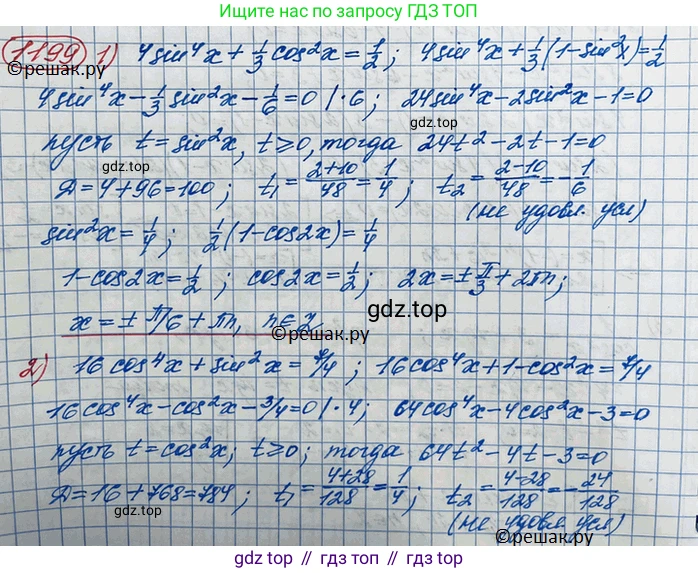 Ищите ответ по запросу ГДЗ ТОП
1199 1) 4sin⁴x + 1/3 cos²x = 1/2; 4sin⁴x + 1/3(1-sin²x) = 1/2
©reшак.ру ©reшак.ру
4sin⁴x - 1/3 sin²x - 1/6 = 0 | ·6; 24sin⁴x - 2sin²x - 1 = 0
пусть t = sin²x, t ≥ 0, тогда 24t² - 2t - 1 = 0
gdz.top gdz.top
Д = 4 + 96 = 100; t₁ = (2+10)/48 = 1/4; t₂ = (2-10)/48 = -1/6
(не удовл. усл)
sin²x = 1/4; 1/2(1-cos2x) = 1/4
1-cos2x = 1/2; cos2x = 1/2; 2x = ± π/3 + 2πn;
gdz.top
x = ± π/6 + πn, n∈Z
©reшак.ру
2) 16cos⁴x + sin²x = 7/4; 16cos⁴x + 1 - cos²x = 7/4
16cos⁴x - cos²x - 3/4 = 0 | ·4; 64cos⁴x - 4cos²x - 3 = 0
пусть t = cos²x; t ≥ 0; тогда 64t² - 4t - 3 = 0
gdz.top gdz.top
Д = 16 + 768 = 784; t₁ = (4+28)/128 = 1/4; t₂ = (4-28)/128 = -24/128
(не удовл. усл)
gdz.top // гдз.top // gdz.top